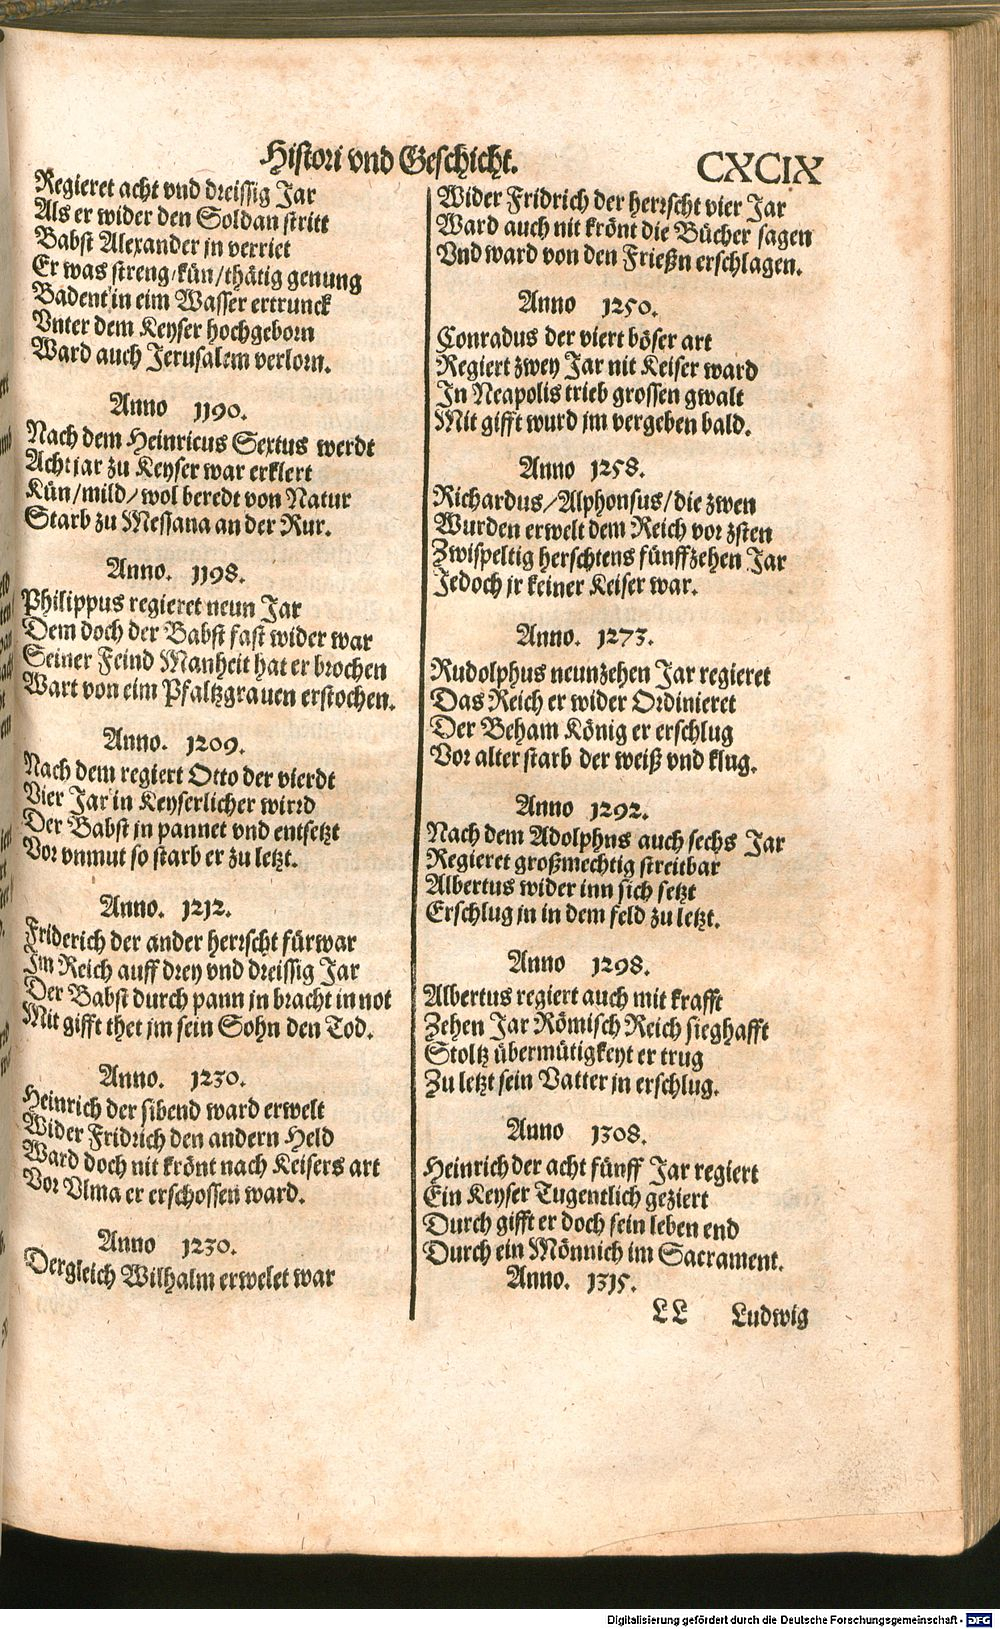 Histori vnd Geschicht. CXCIX
Regieret acht vnd dreissig Jar
Als er wider den Soldan stritt
Babst Alexander jn verriet
Er was streng/kün/thätig genung
Badent in eim Wasser ertrunck
Vnter dem Keyser hochgeborn
Ward auch Jerusalem verlorn.
Anno 1190.
Nach dem Heinricus Sextus werdt
Acht jar zu Keyser war erklert
Kün/mild/wol beredt von Natur
Starb zu Messana an der Rur.
Anno. 1198.
Philippus regieret neun Jar
Dem doch der Babst fast wider war
Seiner Feind Manheit hat er brochen
Wart von eim Pfaltzgrauen erstochen.
Anno. 1209.
Nach dem regiert Otto der vierdt
Vier Jar in Keyserlicher wirrd
Der Babst jn pannet vnd entsetzt
Vor vnmut so starb er zu letzt.
Anno. 1212.
Friderich der ander herrscht fürwar
Im Reich auff drey vnd dreissig Jar
Der Babst durch pann jn bracht in not
Mit gifft thet jm sein Sohn den Tod.
Anno. 1230.
Heinrich der sibend ward erwelt
Wider Fridrich den andern Held
Ward doch nit krönt nach Keisers art
Vor Vlma er erschossen ward.
Anno 1230.
Dergleich Wilhalm erwelet war
Wider Fridrich der herrscht vier Jar
Ward auch nit krönt die Bücher sagen
Vnd ward von den Frießn erschlagen.
Anno 1250.
Conradus der viert böser art
Regiert zwey Jar nit Keiser ward
In Neapolis trieb grossen gwalt
Mit gifft wurd jm vergeben bald.
Anno 1258.
Richardus/Alphonsus/die zwen
Wurden erwelt dem Reich vor zsten
Zwispeltig herschtens fünffzehen Jar
Jedoch jr keiner Keiser war.
Anno. 1273.
Rudolphus neunzehen Jar regieret
Das Reich er wider Ordinieret
Der Beham König er erschlug
Vor alter starb der weiß vnd klug.
Anno 1292.
Nach dem Adolphns auch sechs Jar
Regieret großmechtig streitbar
Albertus wider inn sich setzt
Erschlug jn in dem feld zu letzt.
Anno 1298.
Albertus regiert auch mit krafft
Zehen Jar Römisch Reich sieghafft
Stoltz übermütigkeyt er trug
Zu letzt sein Vatter jn erschlug.
Anno 1308.
Heinrich der acht fünff Jar regiert
Ein Keyser Tugentlich geziert
Durch gifft er doch sein leben end
Durch ein Mönnich im Sacrament.
Anno. 1315.
LL Ludwig
Digitalisierung gefördert durch die Deutsche Forschungsgemeinschaft - DFG